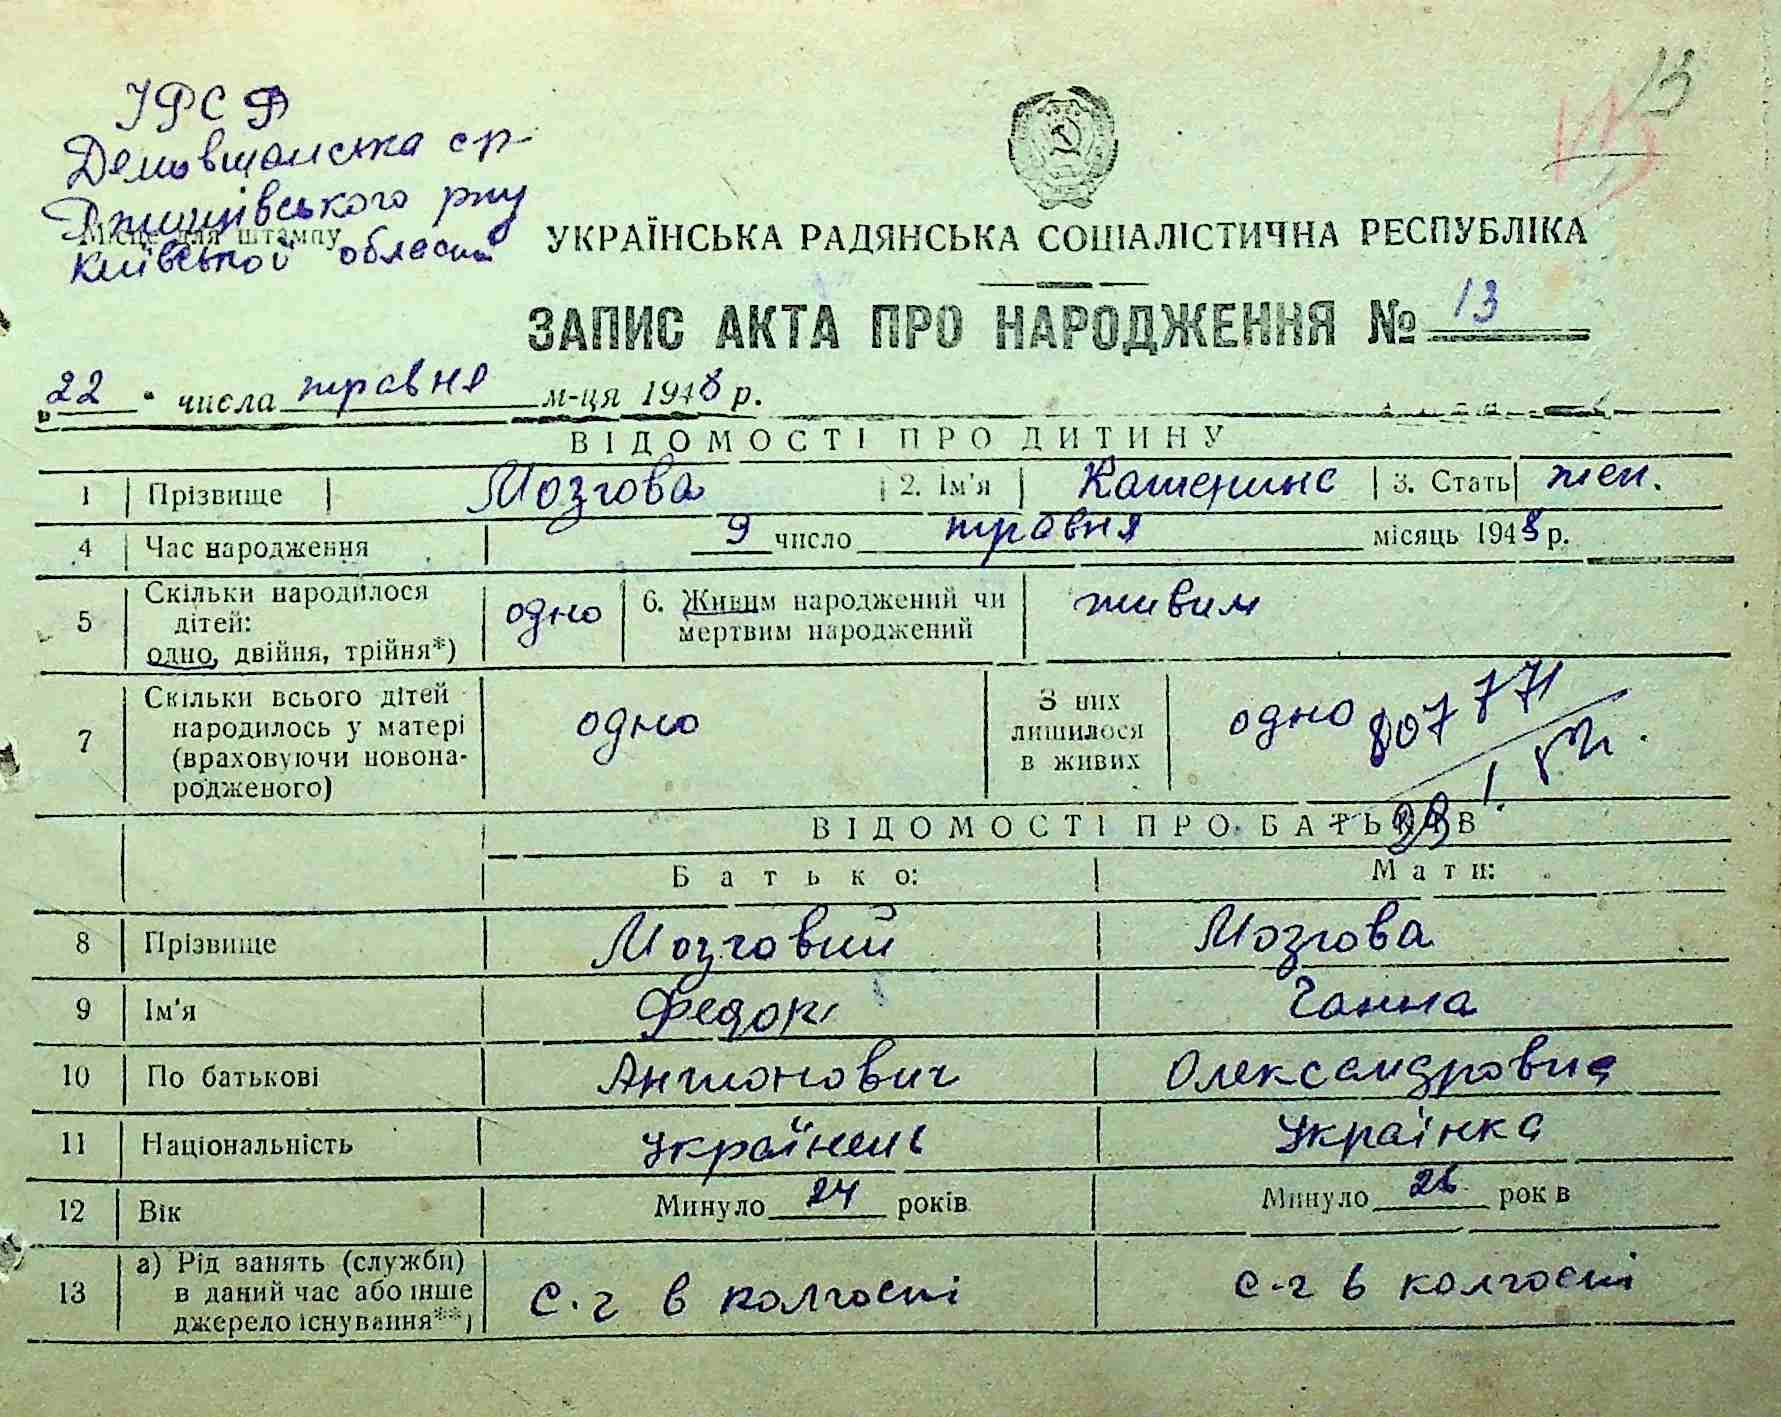 УРСР
Демовщанська ср
Ржищівського р-ну
Місце для штампу
Київської області
13
УКРАЇНСЬКА РАДЯНСЬКА СОЦІАЛІСТИЧНА РЕСПУБЛІКА
ЗАПИС АКТА ПРО НАРОДЖЕННЯ № 13
„22" числа травня м-ця 1948 р.
ВІДОМОСТІ ПРО ДИТИНУ
1 Прізвище Мозгова 2. Ім'я Катерина 3. Стать жен.
4 Час народження 9 число травня місяць 1948 р.
5 Скільки народилося дітей: одно, двійня, трійня*) одно 6. Живим народжений чи мертвим народжений живим
7 Скільки всього дітей народилось у матері (враховуючи новонародженого) одно З них лишилося в живих одно
807771
ВІДОМОСТІ ПРО БАТЬКІВ
Батько: Мати:
8 Прізвище Мозговий Мозгова
9 Ім'я Федор Ганна
10 По батькові Антонович Олександровна
11 Національність Українець Українка
12 Вік Минуло 24 років Минуло 26 рок в
13 а) Рід занять (служби) в даний час або інше джерело існування**) с-г в колгоспі с-г в колгоспі